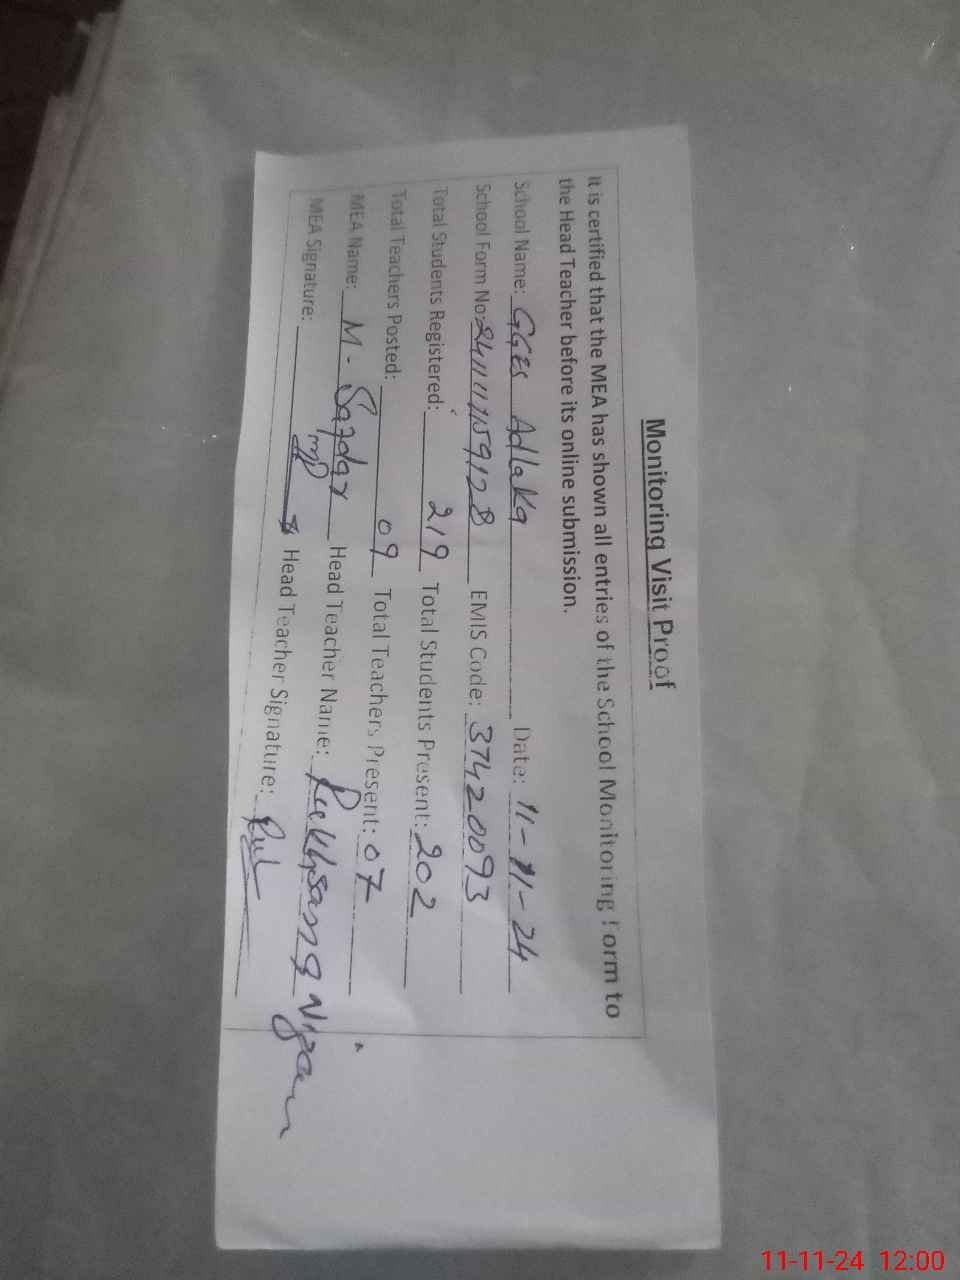 Monitoring Visit Proof
It is certified that the MEA has shown all entries of the School Monitoring Form to
the Head Teacher before its online submission.
School Name: GGES Adlaka Date: 11-11-24
School Form No: EMIS Code: 37420093
Total Students Registered: 219 Total Students Present: 202
Total Teachers Posted: 09 Total Teachers Present: 07
MEA Name: M. Safdar Head Teacher Name: Rukhsana
MEA Signature: Head Teacher Signature:
11-11-24 12:00